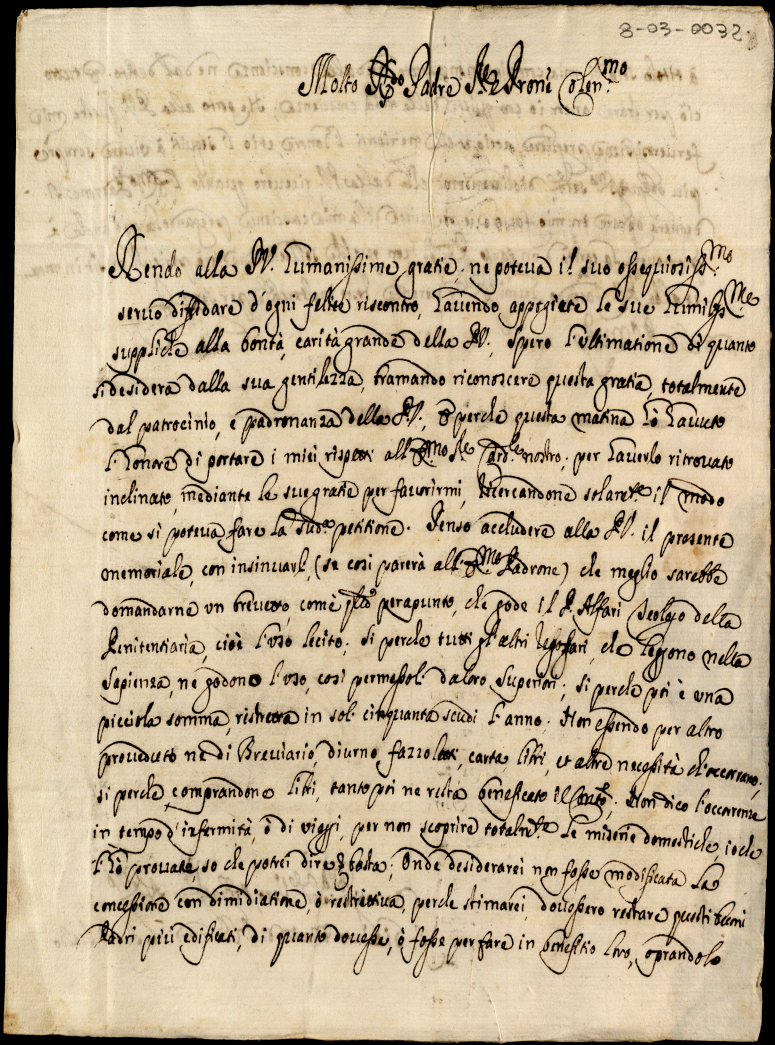 8-03-0032
Molto R.do Padre Sig.re e Prone Colen.mo
Rendo alla P.V. humanissime gratie; ne poteva il suo ossequiosiss.mo
servo diffidare d'ogni felice riscontro, havendo appogiate le sue humiliss.me
suppliche alla bontà, carità grande della P.V., spero l'ultimatione di quanto
si desidera dalla sua gentilezza, bramando riconoscere questa gratia, totalmente
dal patrocinio, e padronanza della P.V., e perche questa matina hò havuto
l'honore di portare i miei rispetti all'Em.mo Sig.re Card.le nostro; per haverlo ritrovato
inclinato, mediante le sue gratie per favorirmi, ricercandone solam.te il modo
come si poteva fare la sud.a petitione. Penso accludere alla P.V. il presente
memoriale, con insinuarli, (se cosi parerà all'Em.mo Padrone) che meglio sarebbe
domandarne un brevetto, com'è per apunto, che gode il P. Alfari Teologo della
Penitentiaria, cioè l'uso lecito; si perche tutti gl'altri che leggono nella
Sapienza, ne godono l'uso, cosi permessoli da loro Superiori; si perche poi è una
picciola somma, ristretta in soli cinquanta scudi l'anno. Non essendo per altro
proveduto ne di Breviario, diurno, fazzoletti, carta, libri, et altre necessità ch'occorrano;
si perche comprandone libri, tanto poi ne resta beneficato il Conv.to; Non dico l'occorrenze
in tempo d'infermità, ò di viaggi, per non scoprire totalm.te le miserie domestiche, io che
l'hò provate so che potrei dire e basta; Onde desiderarei non fosse modificata la
concessione con dimidiatione, ò restrettiva, perche stimarei, dovessero restare questi buoni
Padri più edificati, di quanto dovesse, ò fosse per fare in benefitio loro, oprandolo